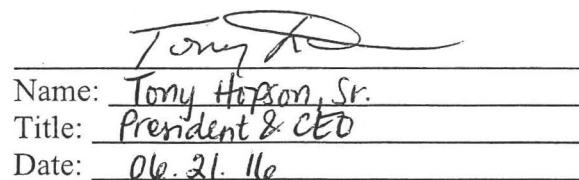 Tony
Name: Tony Hopson, Sr.
Title: President & CEO
Date: 06.21.16